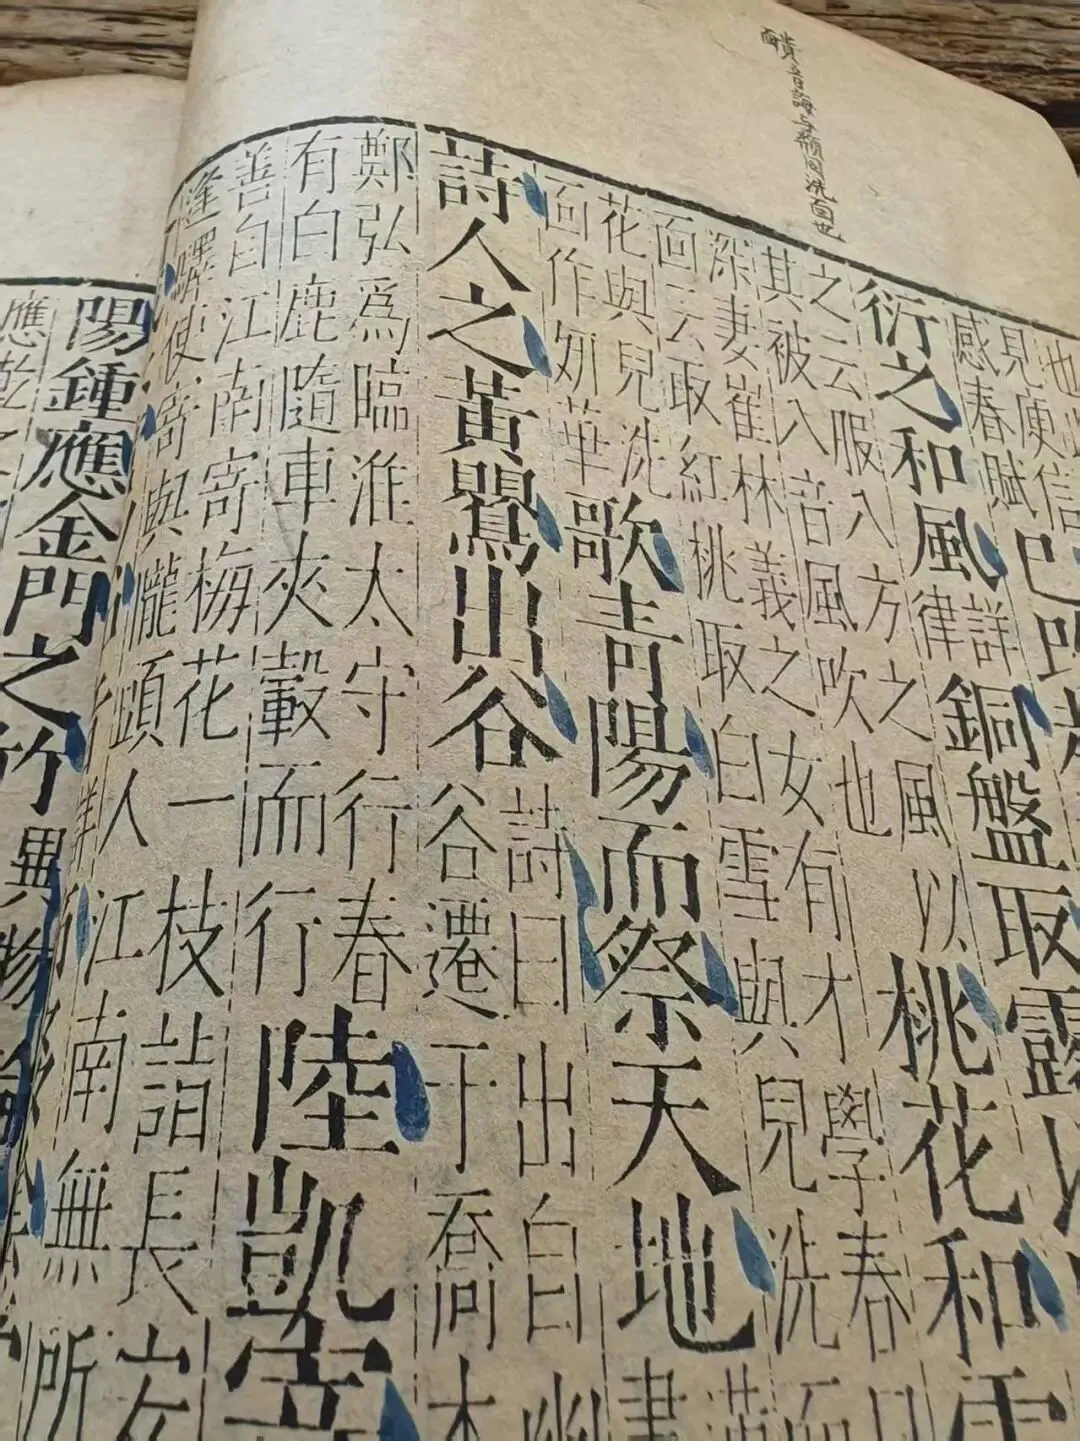 靧音誨与頮同洗面也
也此
見便信
感春賦
巴
衍之和風
詳
律
銅盤取露以
之云服入方之風
其被入音風吹也
以桃花和雪
深妻崔林義之女有才學春日
靣云取紅桃取白雪與兒洗靣
花與兒洗
靣作妍華
歌青陽而祭天地
漢
書
詩人之黃鸎出谷
詩曰出自幽
谷遷于喬木
鄭弘爲臨淮太守行春
有白鹿隨車夾轂而行
陸凱寄
善自江南寄梅花一枝詣長安
逢驛使寄與隴頭人江南無所
陽鍾應金門之竹
異物
應乾